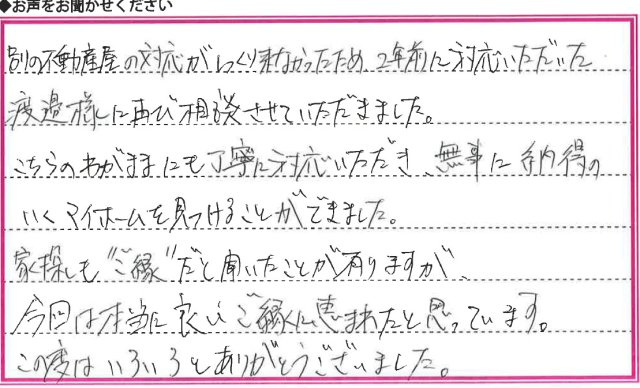 ◆お声をお聞かせください
別の不動産屋の対応がしっくり来なかったため、2年前に対応いただいた
渡邉様に再び相談させていただきました。
こちらのわがままにも丁寧に対応いただき、無事に納得の
いくマイホームを見つけることができました。
家探しも"ご縁"だと聞いたことが有りますが、
今回は本当に良いご縁に恵まれたと思っています。
この度はいろいろとありがとうございました。